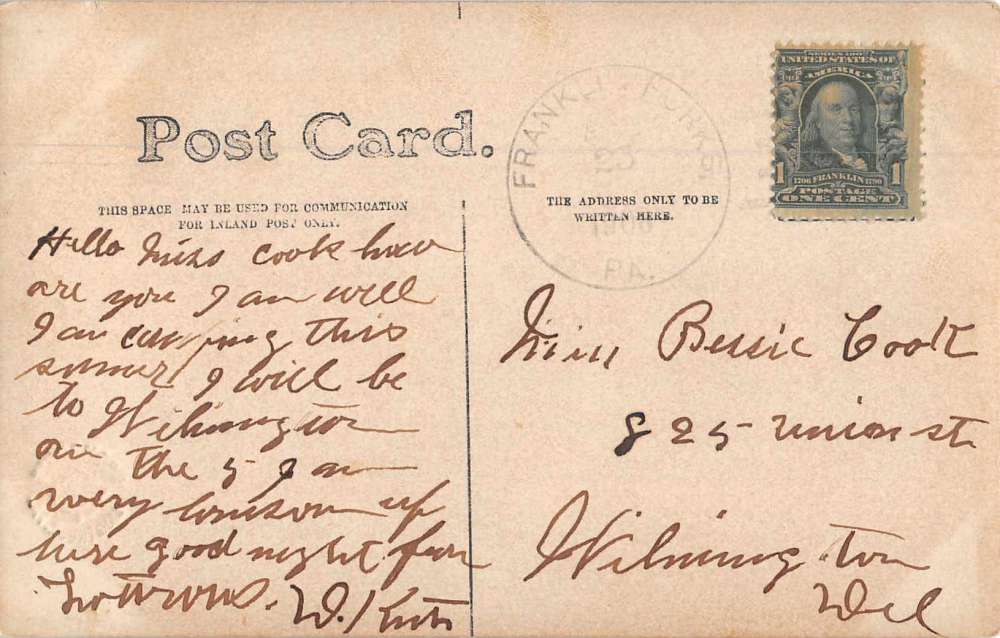 Post Card.
THIS SPACE MAY BE USED FOR COMMUNICATION
FOR INLAND POST ONLY.
THE ADDRESS ONLY TO BE
WRITTEN HERE.
FRANKLI
1906
PA.
SERIES 1902
UNITED STATES OF
AMERICA
1706 FRANKLIN 1790
1 POSTAGE 1
ONE CENT
Hello Miss Cook how
are you I am well
I am camping this
summer I will be
to Wilmington
on the 5 I am
very lonsom up
here good night from
W.
Miss Bessie Cook
825 Union st
Wilmington
Del